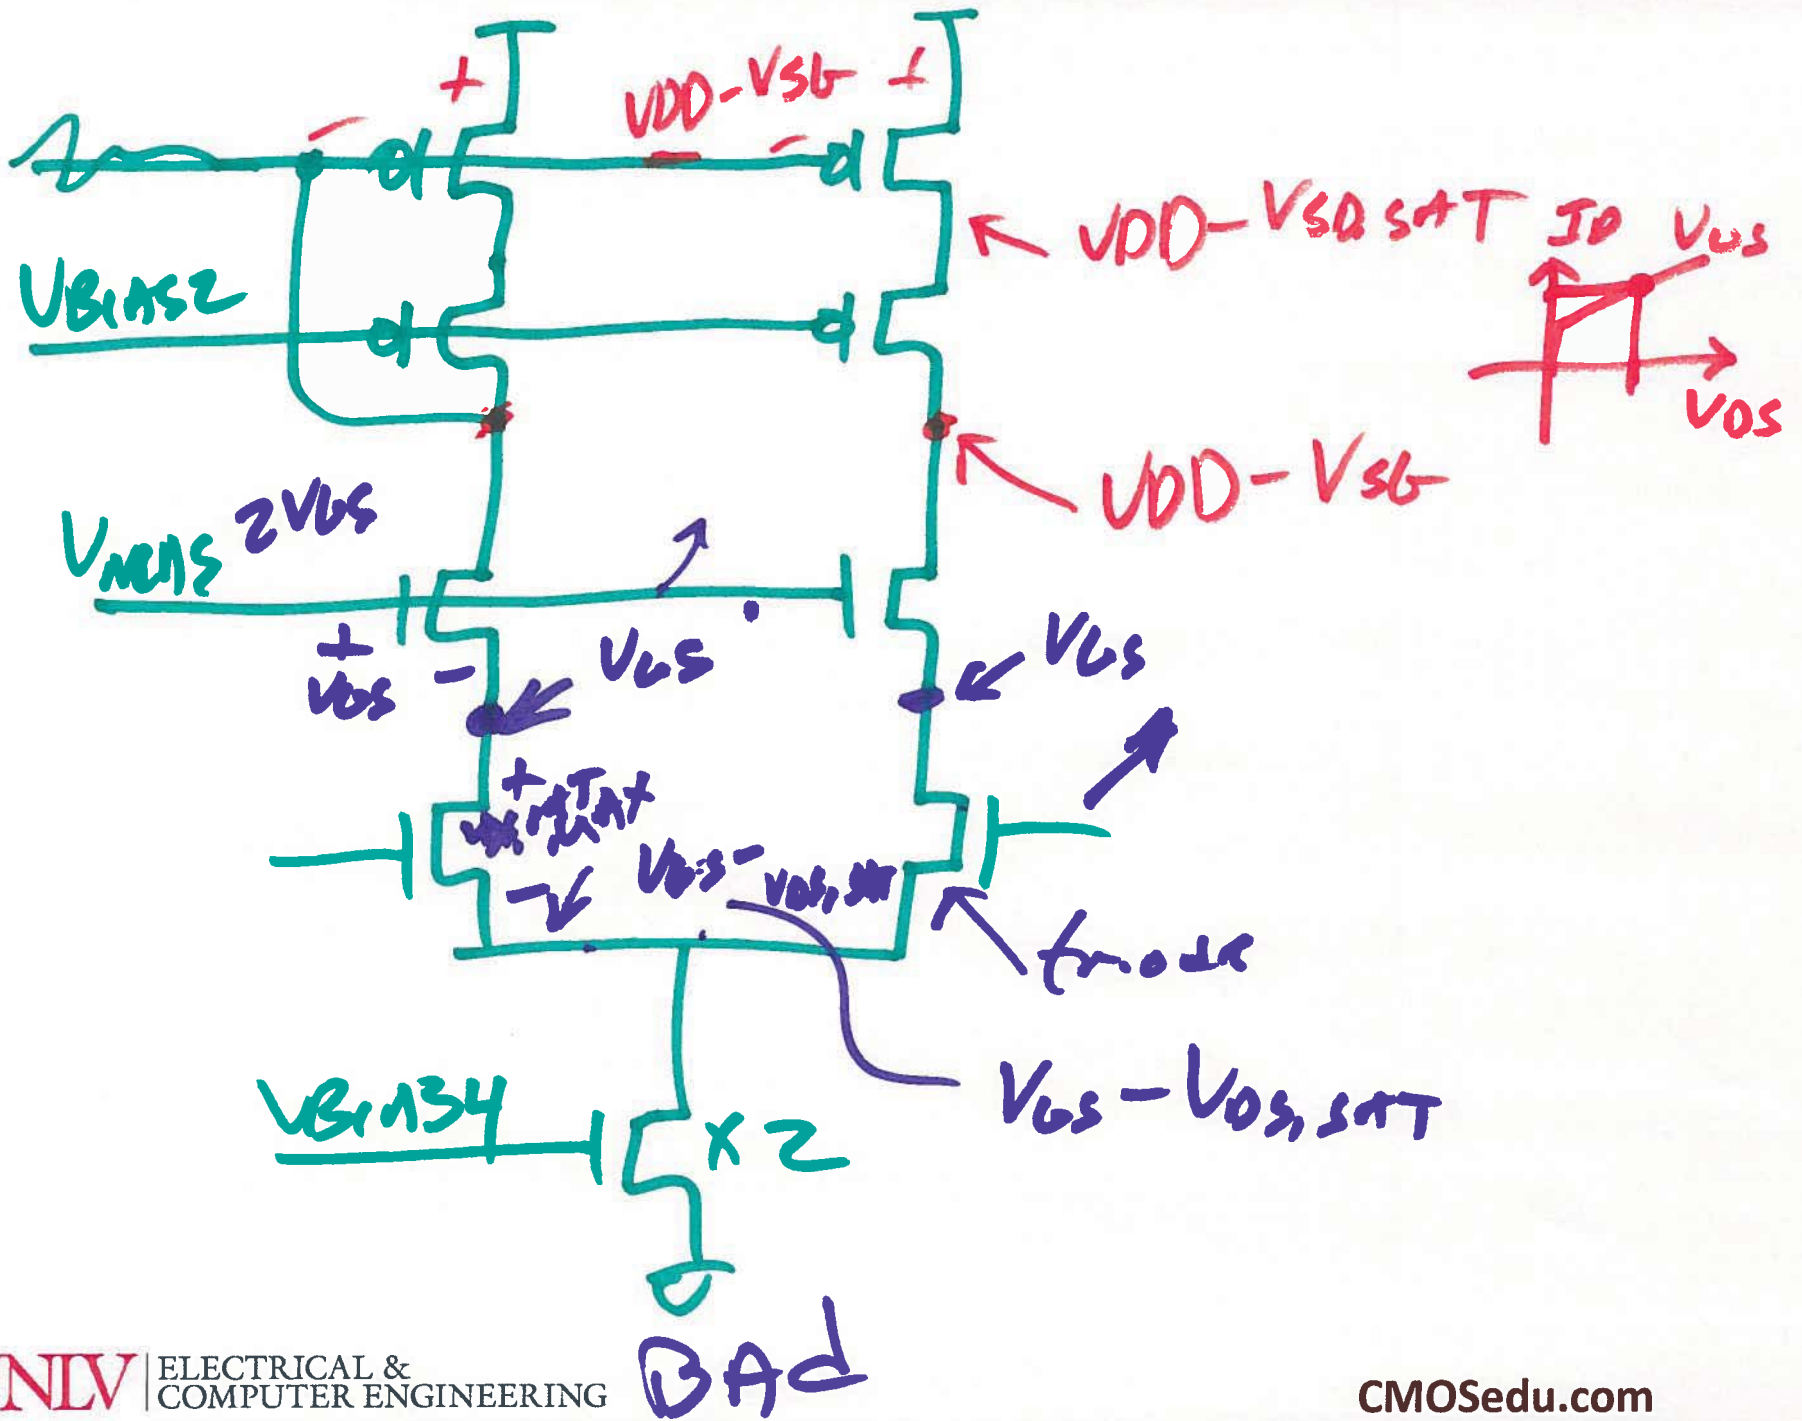 +
VDD-VSG
+
-
-
VDD-VSD,SAT
ID
VGS
VBIAS2
VDS
VDD-VSG
2VGS
VNCAS
+
VGS
-
VGS
VGS
+
-
VGS-VDS,SAT
triode
VGS-VDS,SAT
VBIAS4
X2
BAd
NLV
ELECTRICAL &
COMPUTER ENGINEERING
CMOSedu.com